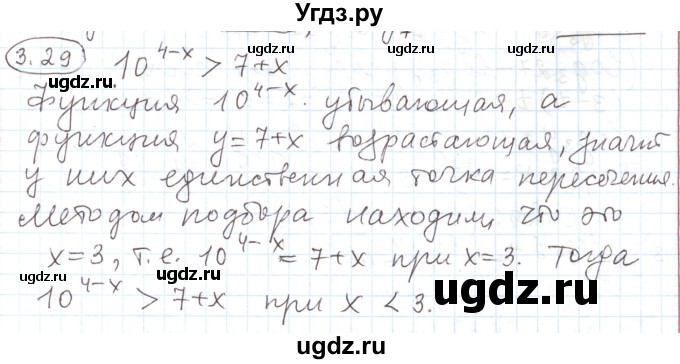 Угдз.ру
3.29 10^{4-x} > 7+x
Функция 10^{4-x} убывающая, а
функция y=7+x возрастающая, значит
у них единственная точка пересечения.
Методом подбора находим, что это
x=3, т.е. 10^{4-x} = 7+x при x=3. Тогда
10^{4-x} > 7+x при x < 3.
ugdz.ru ugdz.ru ugdz.ru
ugdz.ru ugdz.ru ugdz.ru
ugdz.ru ugdz.ru ugdz.ru
ugdz.ru ugdz.ru ugdz.ru
ugdz.ru ugdz.ru ugdz.ru
Угдз.ру